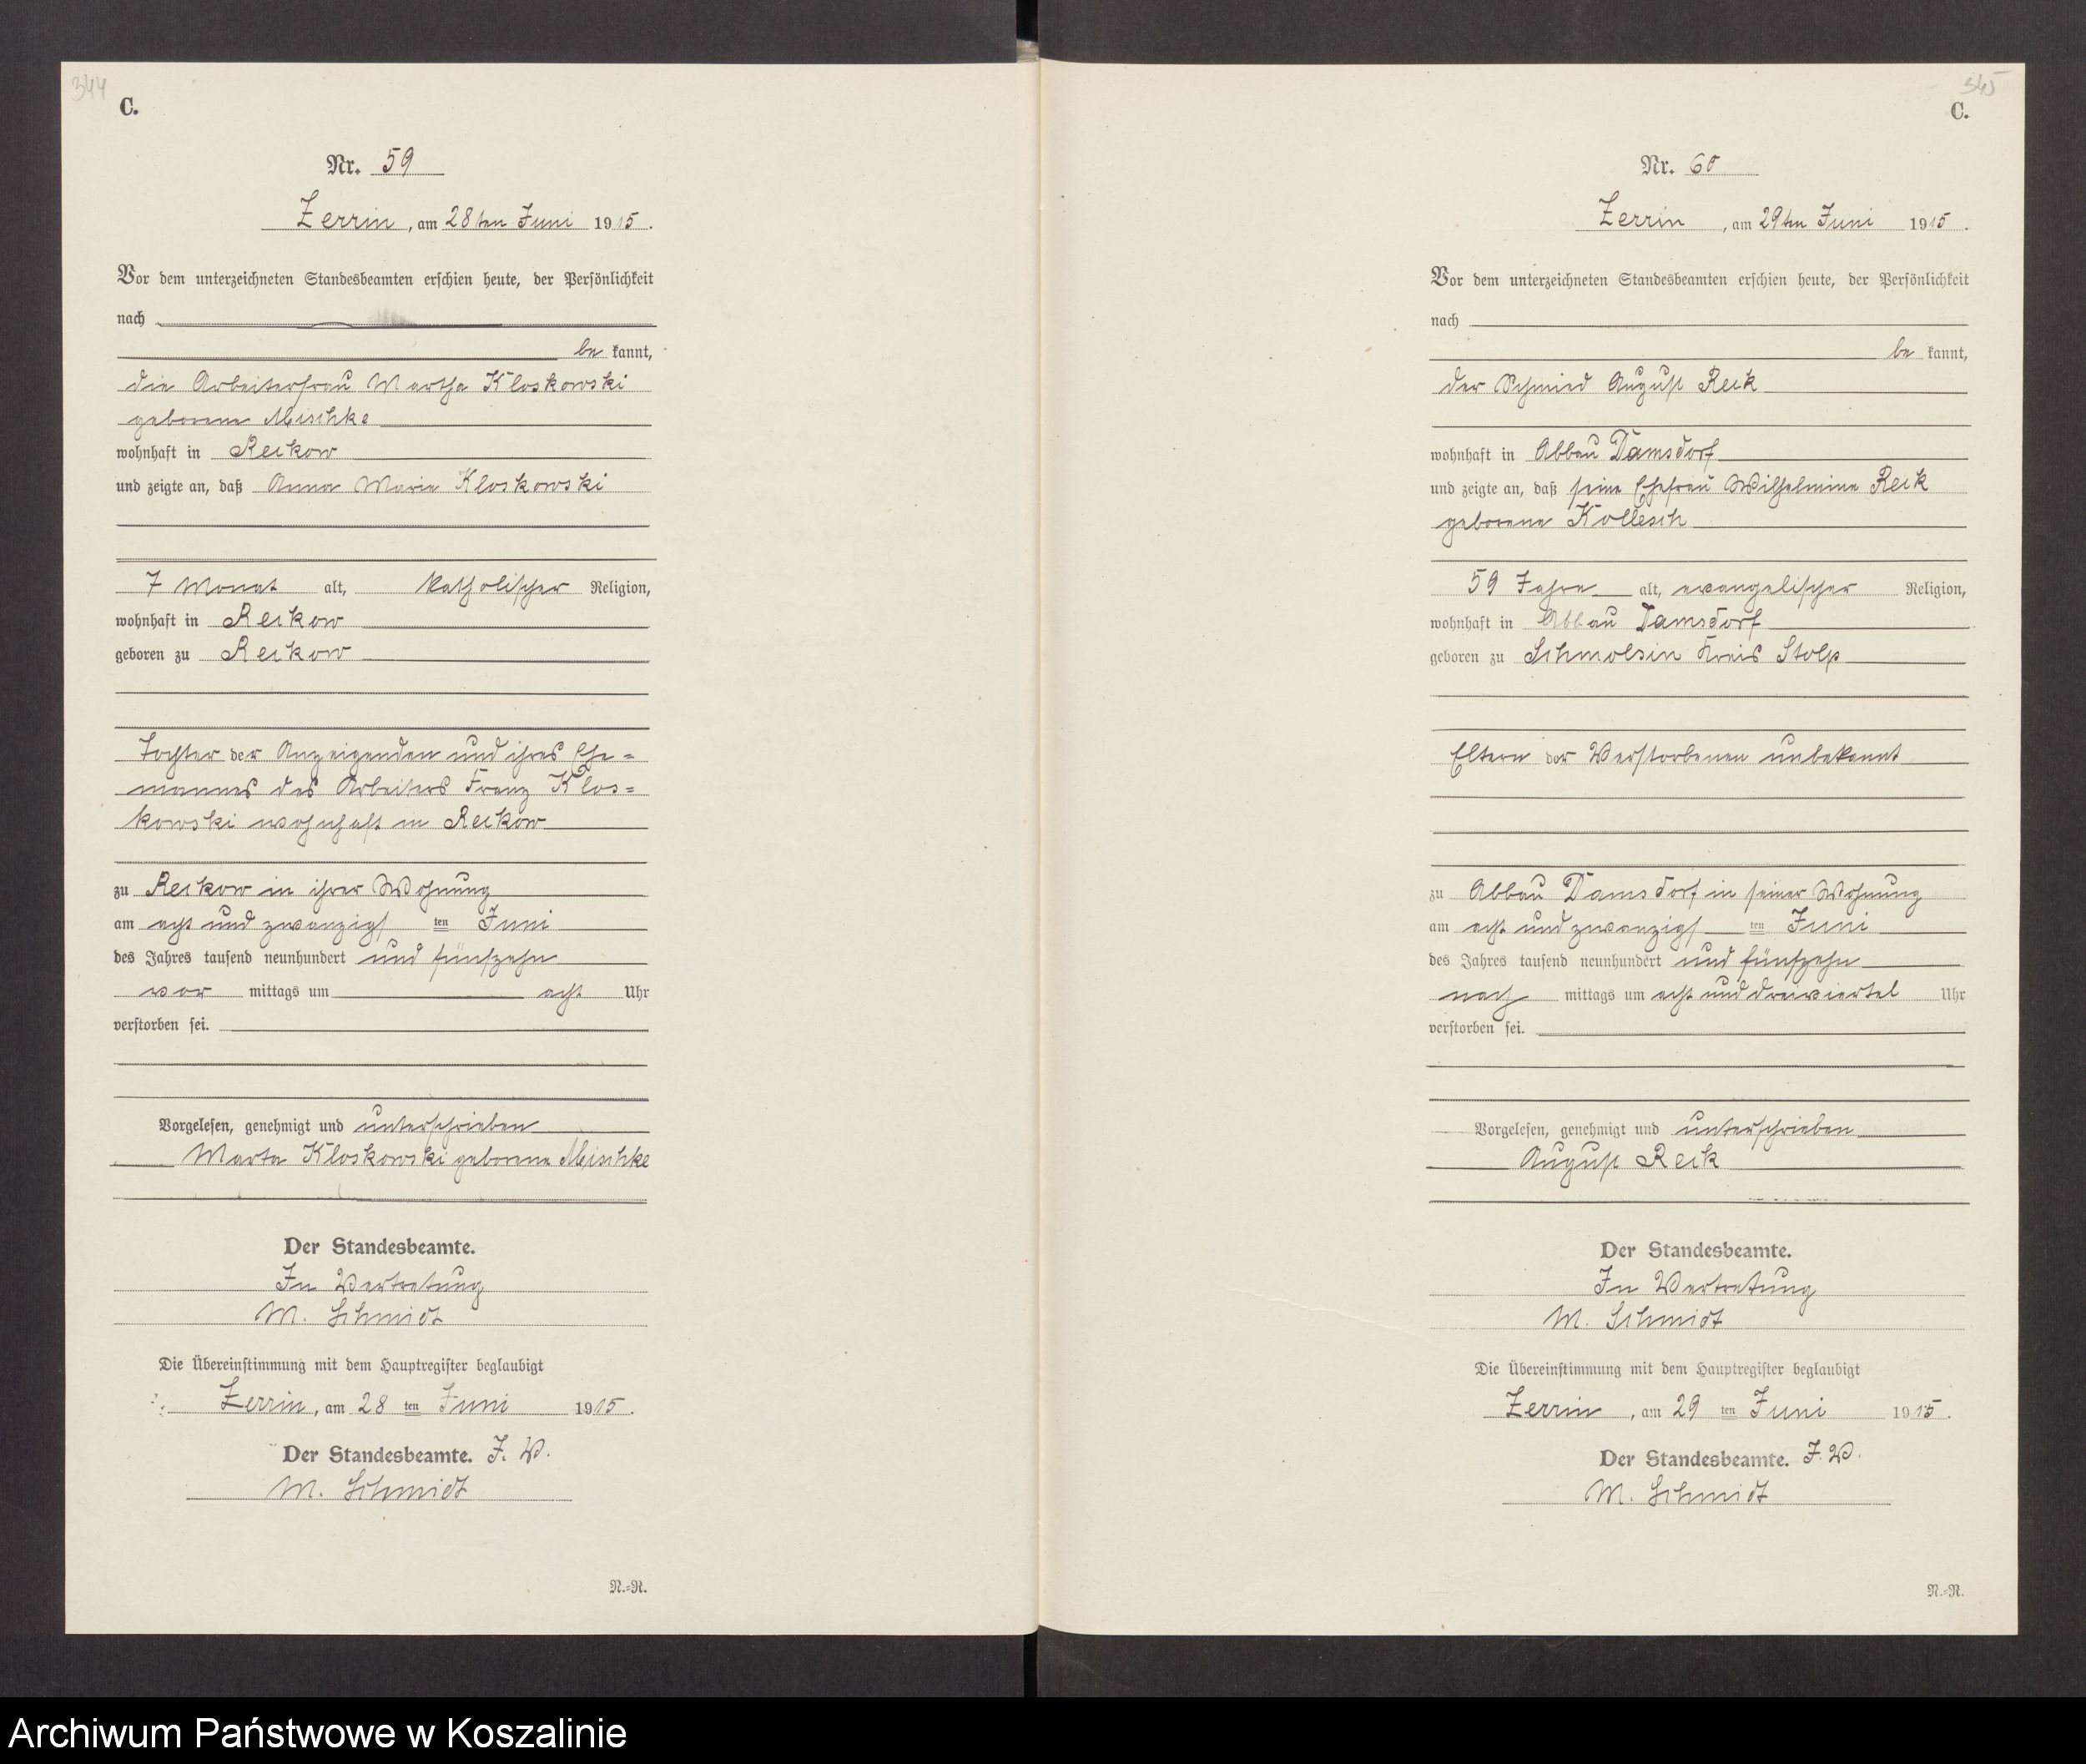 344
C.
Nr. 59
Zerrin, am 28ten Juni 1915.
Vor dem unterzeichneten Standesbeamten erschien heute, der Persönlichkeit
nach
be kannt,
die Arbeiterfrau Martha Kloskowski
geborene Mischke
wohnhaft in Reikow
und zeigte an, daß Anna Marie Kloskowski
7 Monat alt, katholischer Religion,
wohnhaft in Reikow
geboren zu Reikow
Tochter der Anzeigenden und ihres Ehe=
mannes des Arbeiters Franz Klos=
kowski wohnhaft in Reikow
zu Reikow in ihrer Wohnung
am acht und zwanzigsten Juni
des Jahres tausend neunhundert und fünfzehn
vor mittags um acht Uhr
verstorben sei.
Vorgelesen, genehmigt und unterschrieben
Marta Kloskowski geborene Mischke
Der Standesbeamte.
In Vertretung
M. Schmidt
Die Übereinstimmung mit dem Hauptregister beglaubigt
Zerrin, am 28 ten Juni 1915.
Der Standesbeamte. I. V.
M. Schmidt
N.=R.
345
C.
Nr. 60
Zerrin, am 29ten Juni 1915.
Vor dem unterzeichneten Standesbeamten erschien heute, der Persönlichkeit
nach
be kannt,
der Schmied August Reik
wohnhaft in Abbau Damsdorf
und zeigte an, daß seine Ehefrau Wilhelmine Reik
geborene Kollesch
59 Jahre alt, evangelischer Religion,
wohnhaft in Abbau Damsdorf
geboren zu Schmolsin Kreis Stolp
Eltern der Verstorbenen unbekannt
zu Abbau Damsdorf in seiner Wohnung
am acht und zwanzigsten Juni
des Jahres tausend neunhundert und fünfzehn
nach mittags um acht und dreiviertel Uhr
verstorben sei.
Vorgelesen, genehmigt und unterschrieben
August Reik
Der Standesbeamte.
In Vertretung
M. Schmidt
Die Übereinstimmung mit dem Hauptregister beglaubigt
Zerrin, am 29 ten Juni 1915.
Der Standesbeamte. I. V.
M. Schmidt
N.=R.
Archiwum Państwowe w Koszalinie